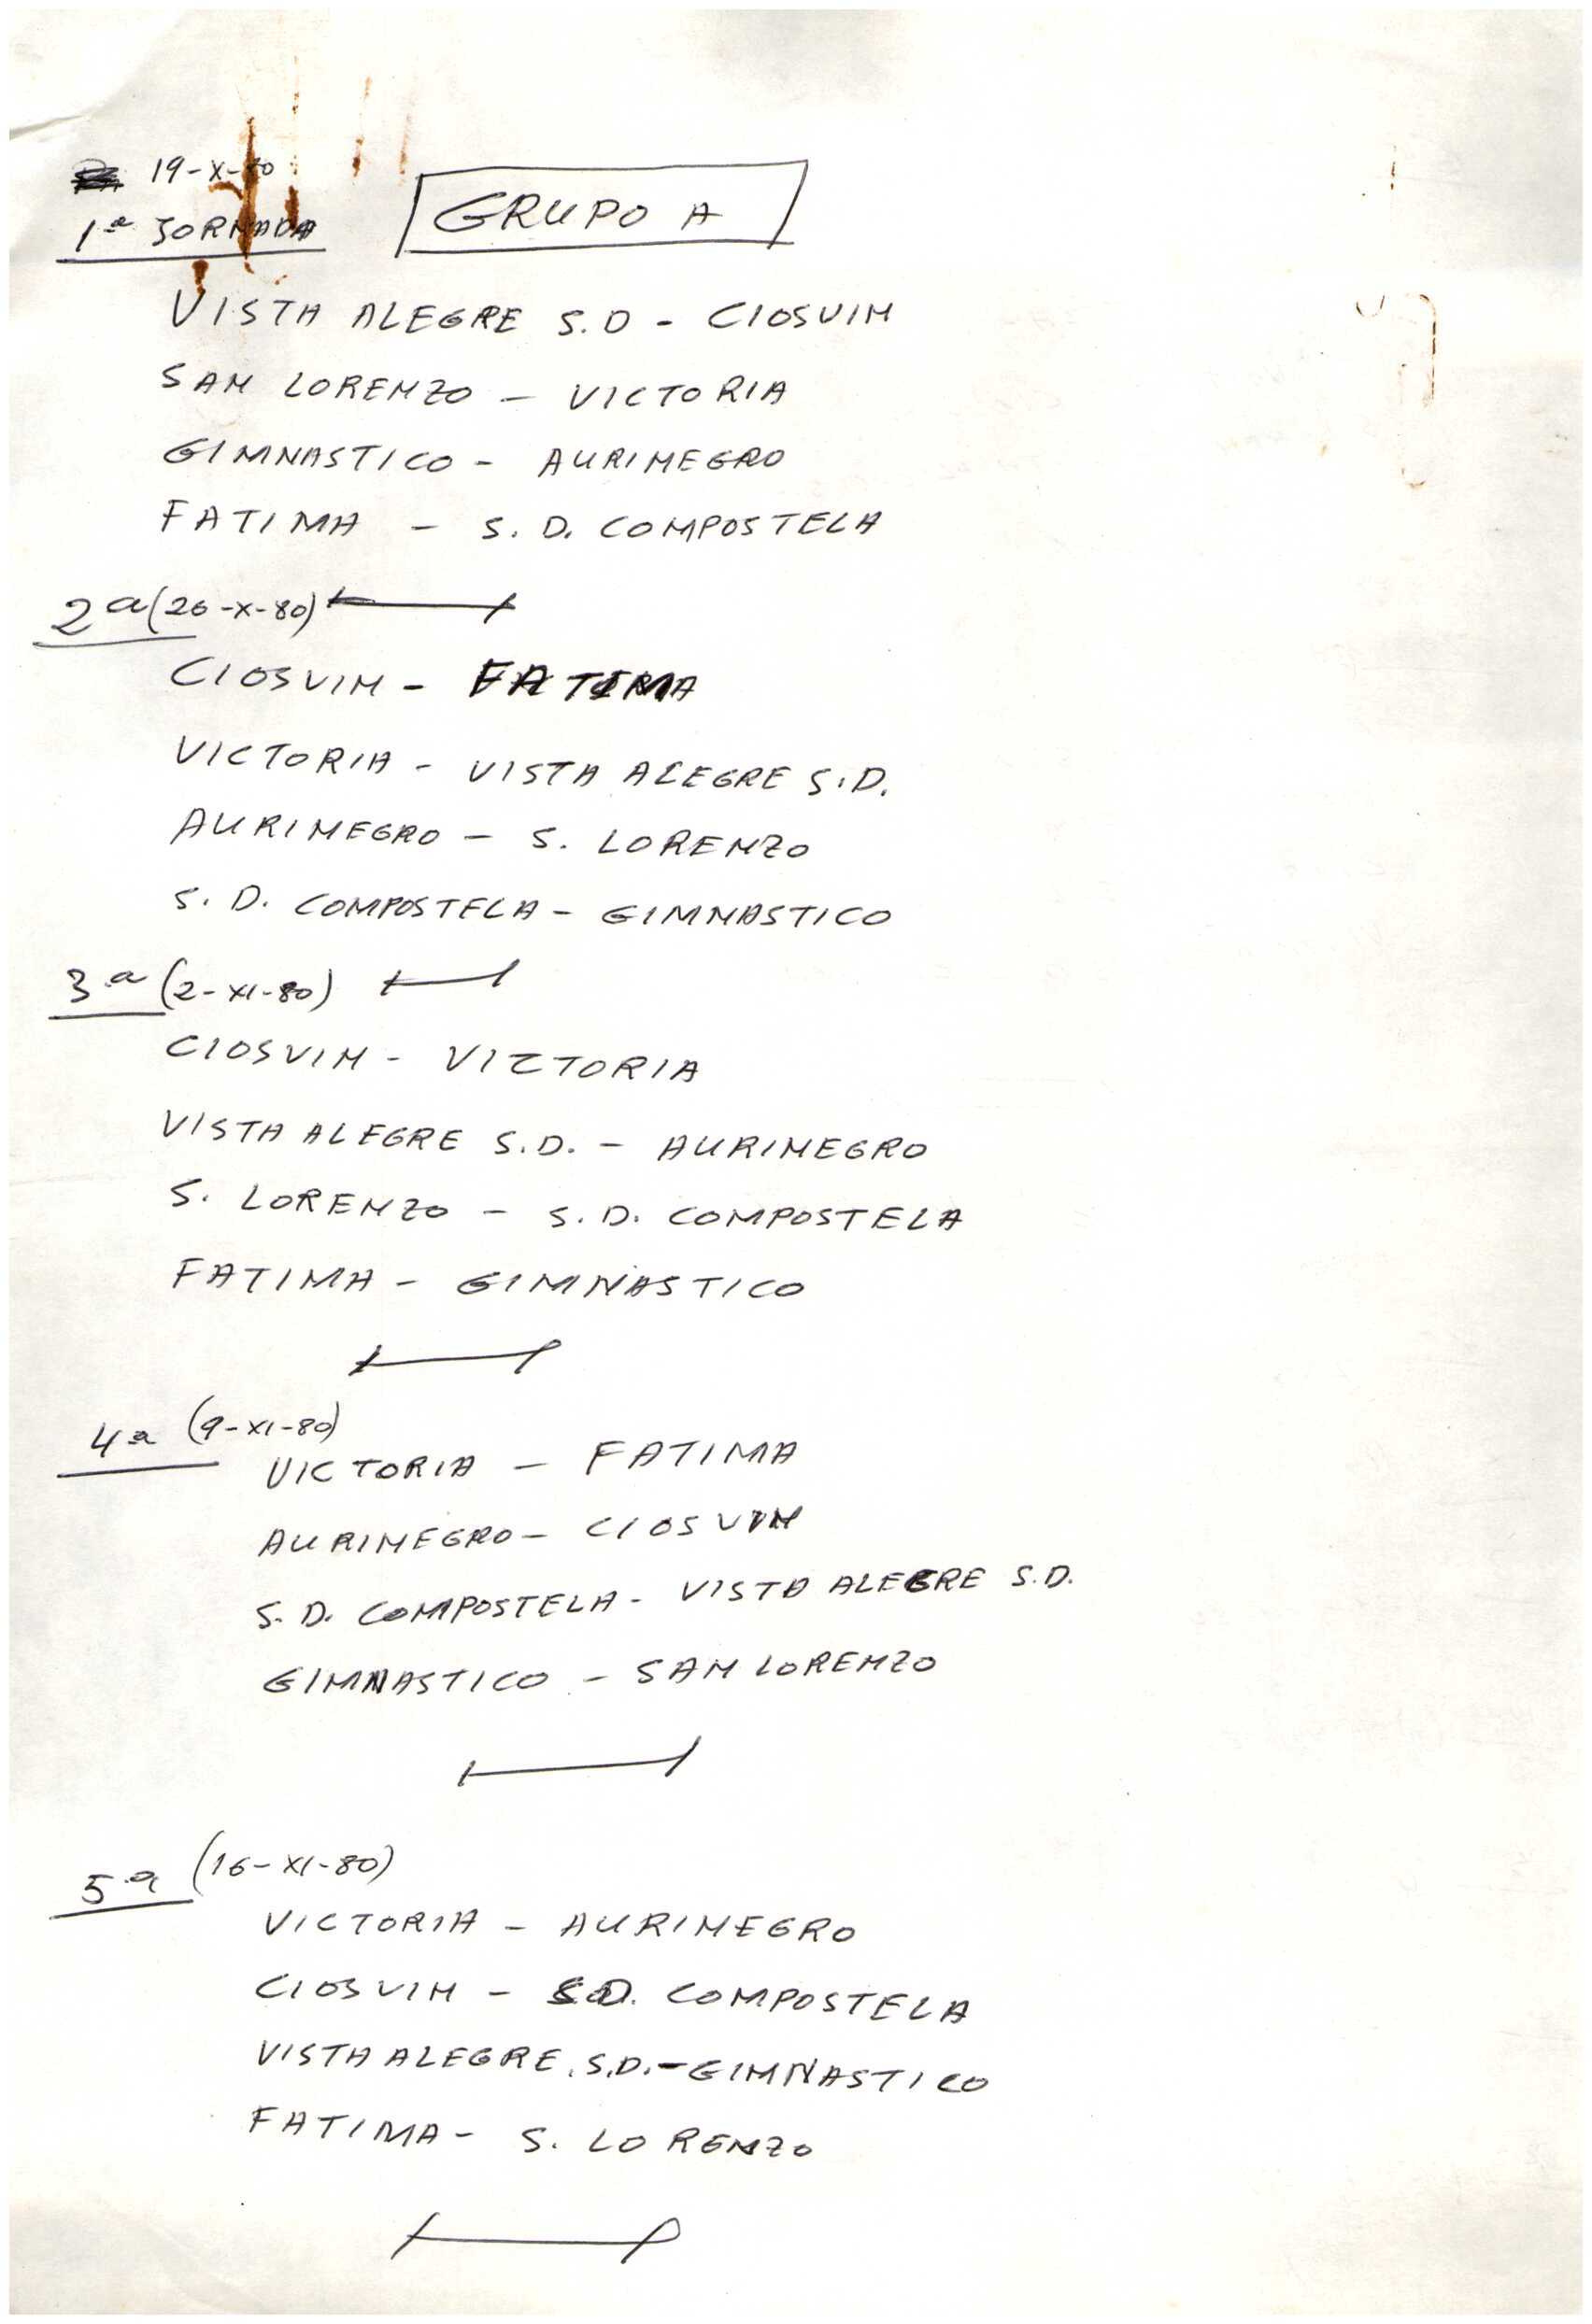 19-X-80
1ª JORNADA
GRUPO A
VISTA ALEGRE S.D - CIOSVIN
SAN LORENZO - VICTORIA
GIMNASTICO - AURINEGRO
FATIMA - S. D. COMPOSTELA
2ª (26-X-80)
CIOSVIN - FATIMA
VICTORIA - VISTA ALEGRE S.D.
AURINEGRO - S. LORENZO
S. D. COMPOSTELA - GIMNASTICO
3ª (2-XI-80)
CIOSVIN - VICTORIA
VISTA ALEGRE S.D. - AURINEGRO
S. LORENZO - S.D. COMPOSTELA
FATIMA - GIMNASTICO
4ª (9-XI-80)
VICTORIA - FATIMA
AURINEGRO - CIOSVIN
S.D. COMPOSTELA - VISTA ALEGRE S.D.
GIMNASTICO - SAN LORENZO
5ª (16-XI-80)
VICTORIA - AURINEGRO
CIOSVIN - S.D. COMPOSTELA
VISTA ALEGRE. S.D. - GIMNASTICO
FATIMA - S. LORENZO